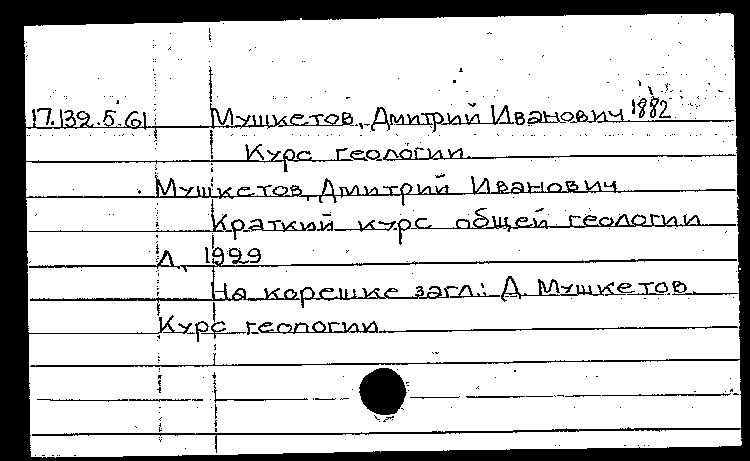 17.139.5.61 Мушкетов, Дмитрий Иванович 1882
Курс геологии.
Мушкетов, Дмитрий Иванович
Краткий курс общей геологии
Л., 1929
На корешке загл.: Д. Мушкетов.
Курс геологии.